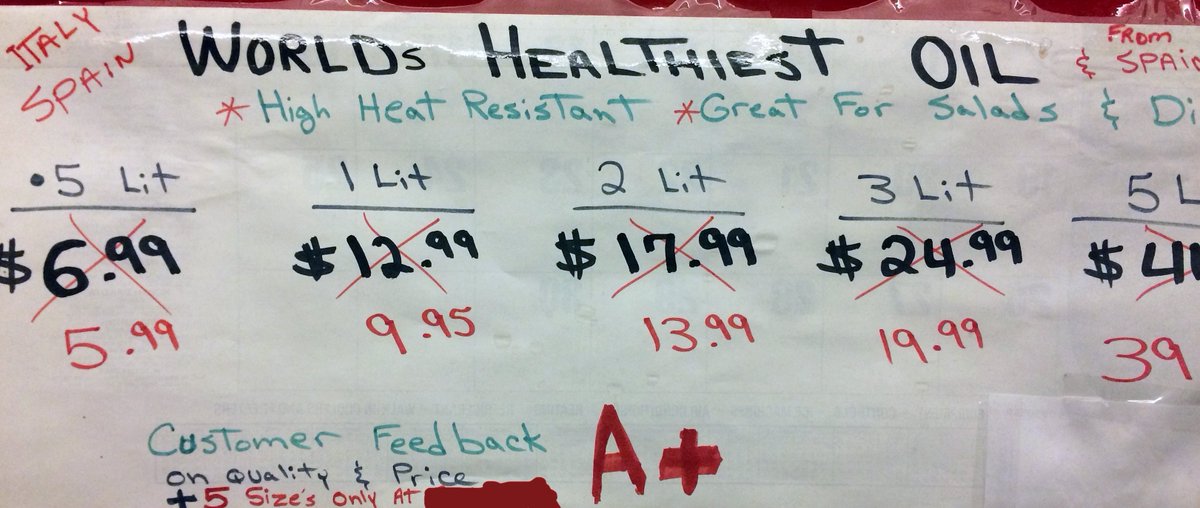 ITALY
SPAIN
WORLDS HEALTHIEST OIL & FROM SPAIN
* High Heat Resistant *Great For Salads & Di
.5 Lit 1 Lit 2 Lit 3 Lit 5 L
$6.99 $12.99 $17.99 $24.99 $4
5.99 9.95 13.99 19.99 39
Customer Feedback
on Quality & Price
+5 Size's only At
A+